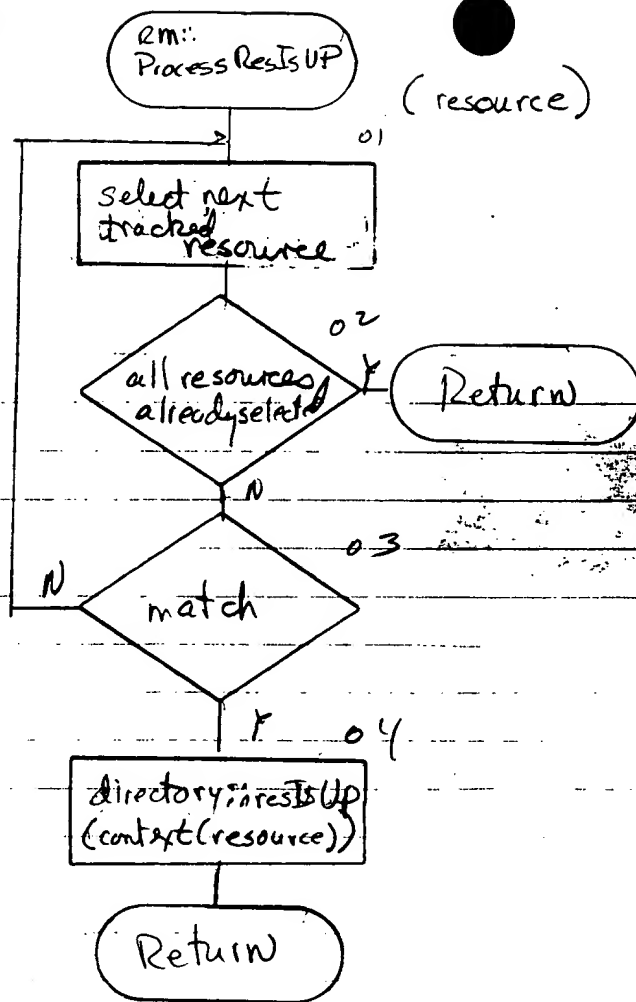 Rm::
ProcessResIsUP
(resource)
01
select next
tracked
resource
02
all resources
already selected
Y
Return
N
03
N
match
Y
04
directory::resIsUp
(context(resource))
Return